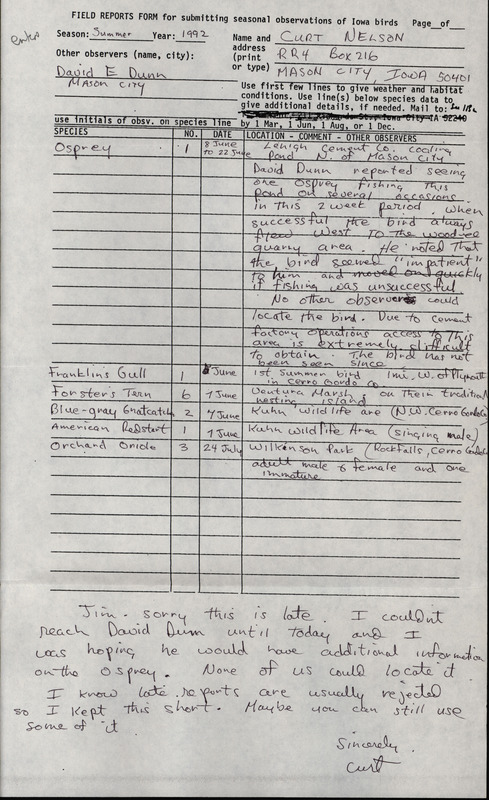 FIELD REPORTS FORM for submitting seasonal observations of Iowa birds Page__of__
enter
Season: Summer Year: 1992
Name and address (print or type) CURT NELSON
RR4 BOX 216
MASON CITY, IOWA 50401
Other observers (name, city):
David E Dunn
MASON CITY
Use first few lines to give weather and habitat
conditions. Use line(s) below species data to
give additional details, if needed. Mail to:
use initials of obsv. on species line by 1 Mar, 1 Jun, 1 Aug, or 1 Dec.
SPECIES NO. DATE LOCATION - COMMENT - OTHER OBSERVERS
Osprey 1 8 June to 22 June Lehigh Cement Co. cooling
pond N. of Mason City
David Dunn reported seeing
one Osprey fishing this
pond on several occasions
in this 2 week period. When
successful the bird always
flew West to the wooded
quarry area. He noted that
the bird seemed "impatient"
to him and moved on quickly
if fishing was unsuccessful
No other observers could
locate the bird. Due to cement
factory operations access to this
area is extremely difficult
to obtain. The bird has not
been seen since
Franklin's Gull 1 June 1st Summer bird 1mi. W. of Plymouth
in Cerro Gordo Co.
Forster's Tern 6 7 June Ventura Marsh on their tradition
nesting island
Blue-gray Gnatcatch 2 7 June Kuhn wildlife are (N.W. Cerro Gordo Co
American Redstart 1 7 June Kuhn wildlife Area (singing male)
Orchard Oriole 3 24 July Wilkinson Park (Rockfalls, Cerro Gordo Co
adult male & female and one
immature
Jim - sorry this is late. I couldnt
reach David Dunn until today and I
was hoping he would have additional information
on the Osprey. None of us could locate it
I know late reports are usually rejected
so I kept this short. Maybe you can still use
some of it
Sincerely,
Curt